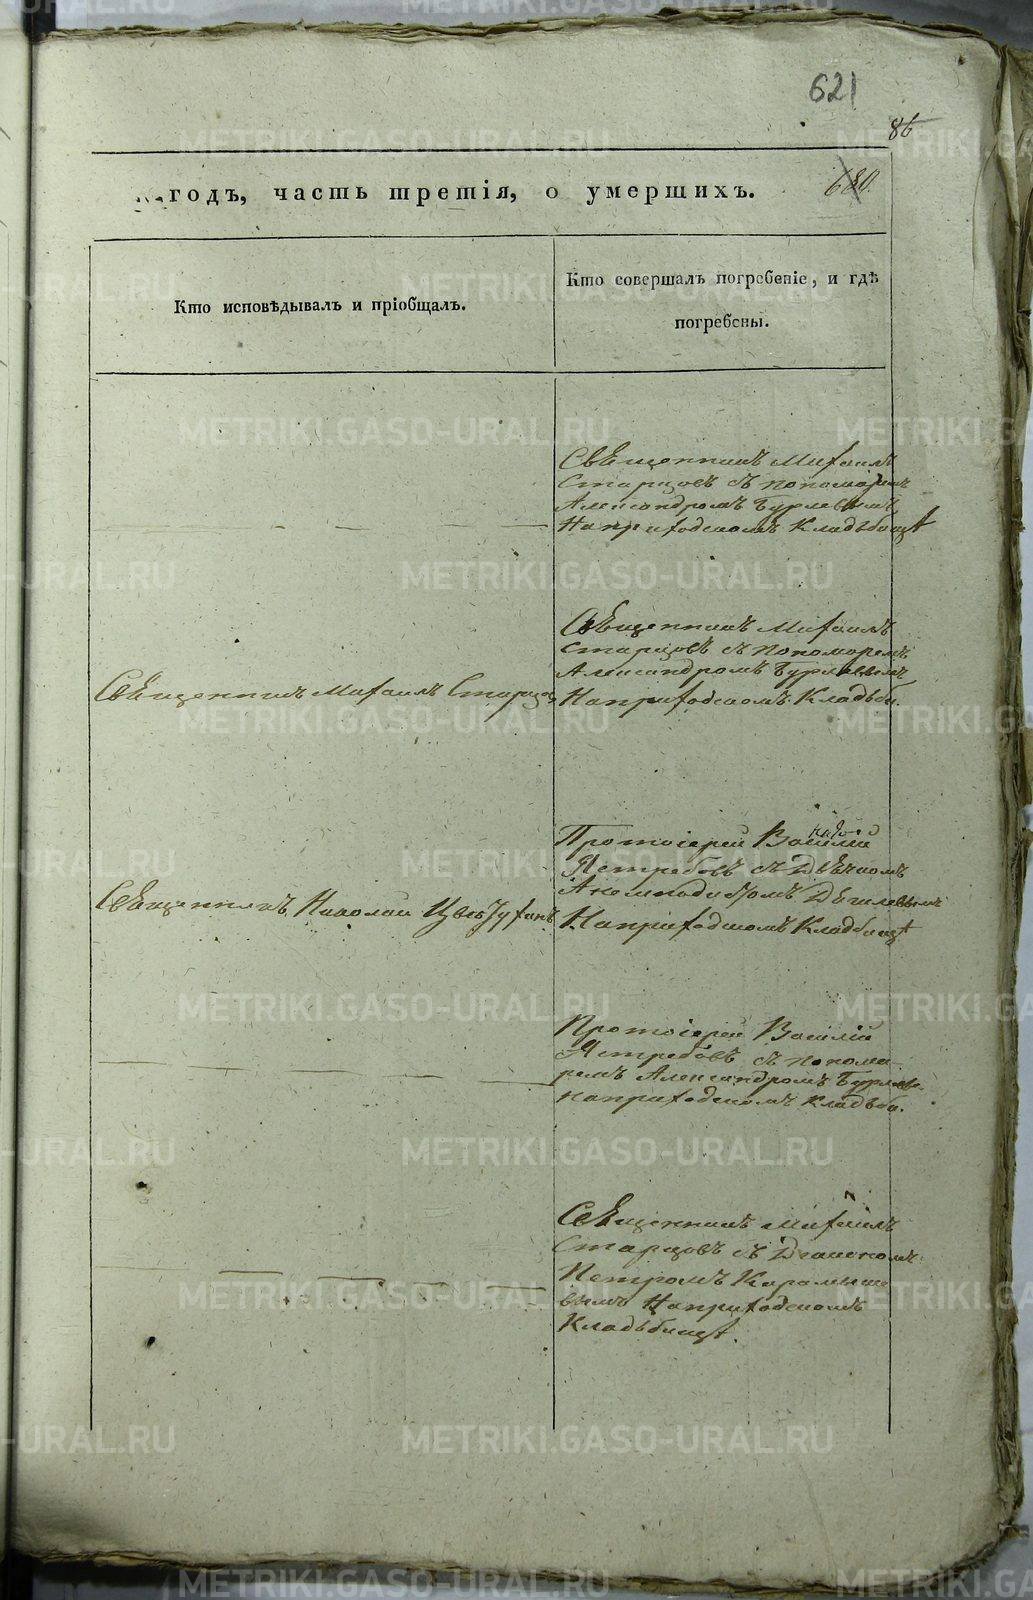 621
86
680.
годъ, часть третія, о умершихъ.
Кто исповѣдывалъ и пріобщалъ.
Кто совершалъ погребеніе, и гдѣ
погребены.
Священникъ Михаилъ
Старцовъ съ пономаремъ
Александромъ Бурлевымъ
На приходскомъ Кладьбищѣ
Священникъ Михаилъ Старцовъ
Священникъ Михаилъ
Старцовъ съ пономоремъ
Александромъ Бурлевымъ
На приходскомъ Кладьби.
Священникъ Николай
Протоіерей Василій
Ястребовъ съ Дьячкомъ
На приходскомъ Кладбищѣ
Протоіерей Василій
Ястребовъ съ понома
ремъ Александромъ Бурлевы
на приходскомъ кладьби.
Священникъ Михаилъ
Старцовъ съ Діакономъ
Петромъ Карамыше
вымъ На приходскомъ
Кладьбищѣ.
METRIKI.GASO-URAL.RU